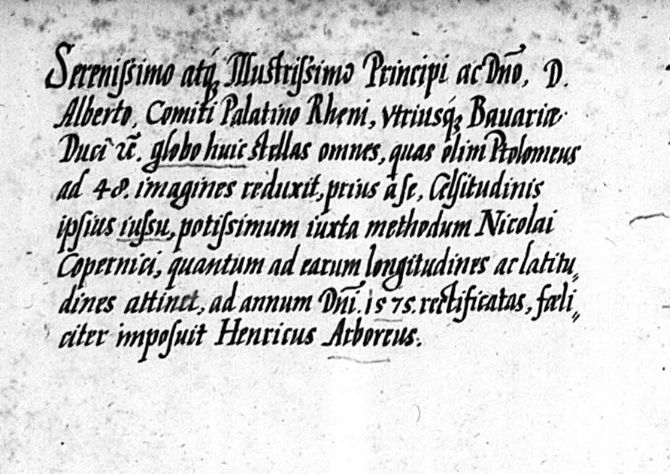 Serenissimo atq́ꝫ Illustrissimo Principi ac Dño, D.
Alberto, Comiti Palatino Rheni, vtriusq́ꝫ Bauariæ
Duci ⁊c̃. globo huic stellas omnes, quas olim Ptolomeus
ad 48. imagines reduxit, prius à se, Celsitudinis
ipsius iussu, potissimum iuxta methodum Nicolai
Copernici, quantum ad earum longitudines ac latitu„
dines attinet, ad annum Dñi. 1575. rectificatas, fœli„
citer imposuit Henricus Arboreus.